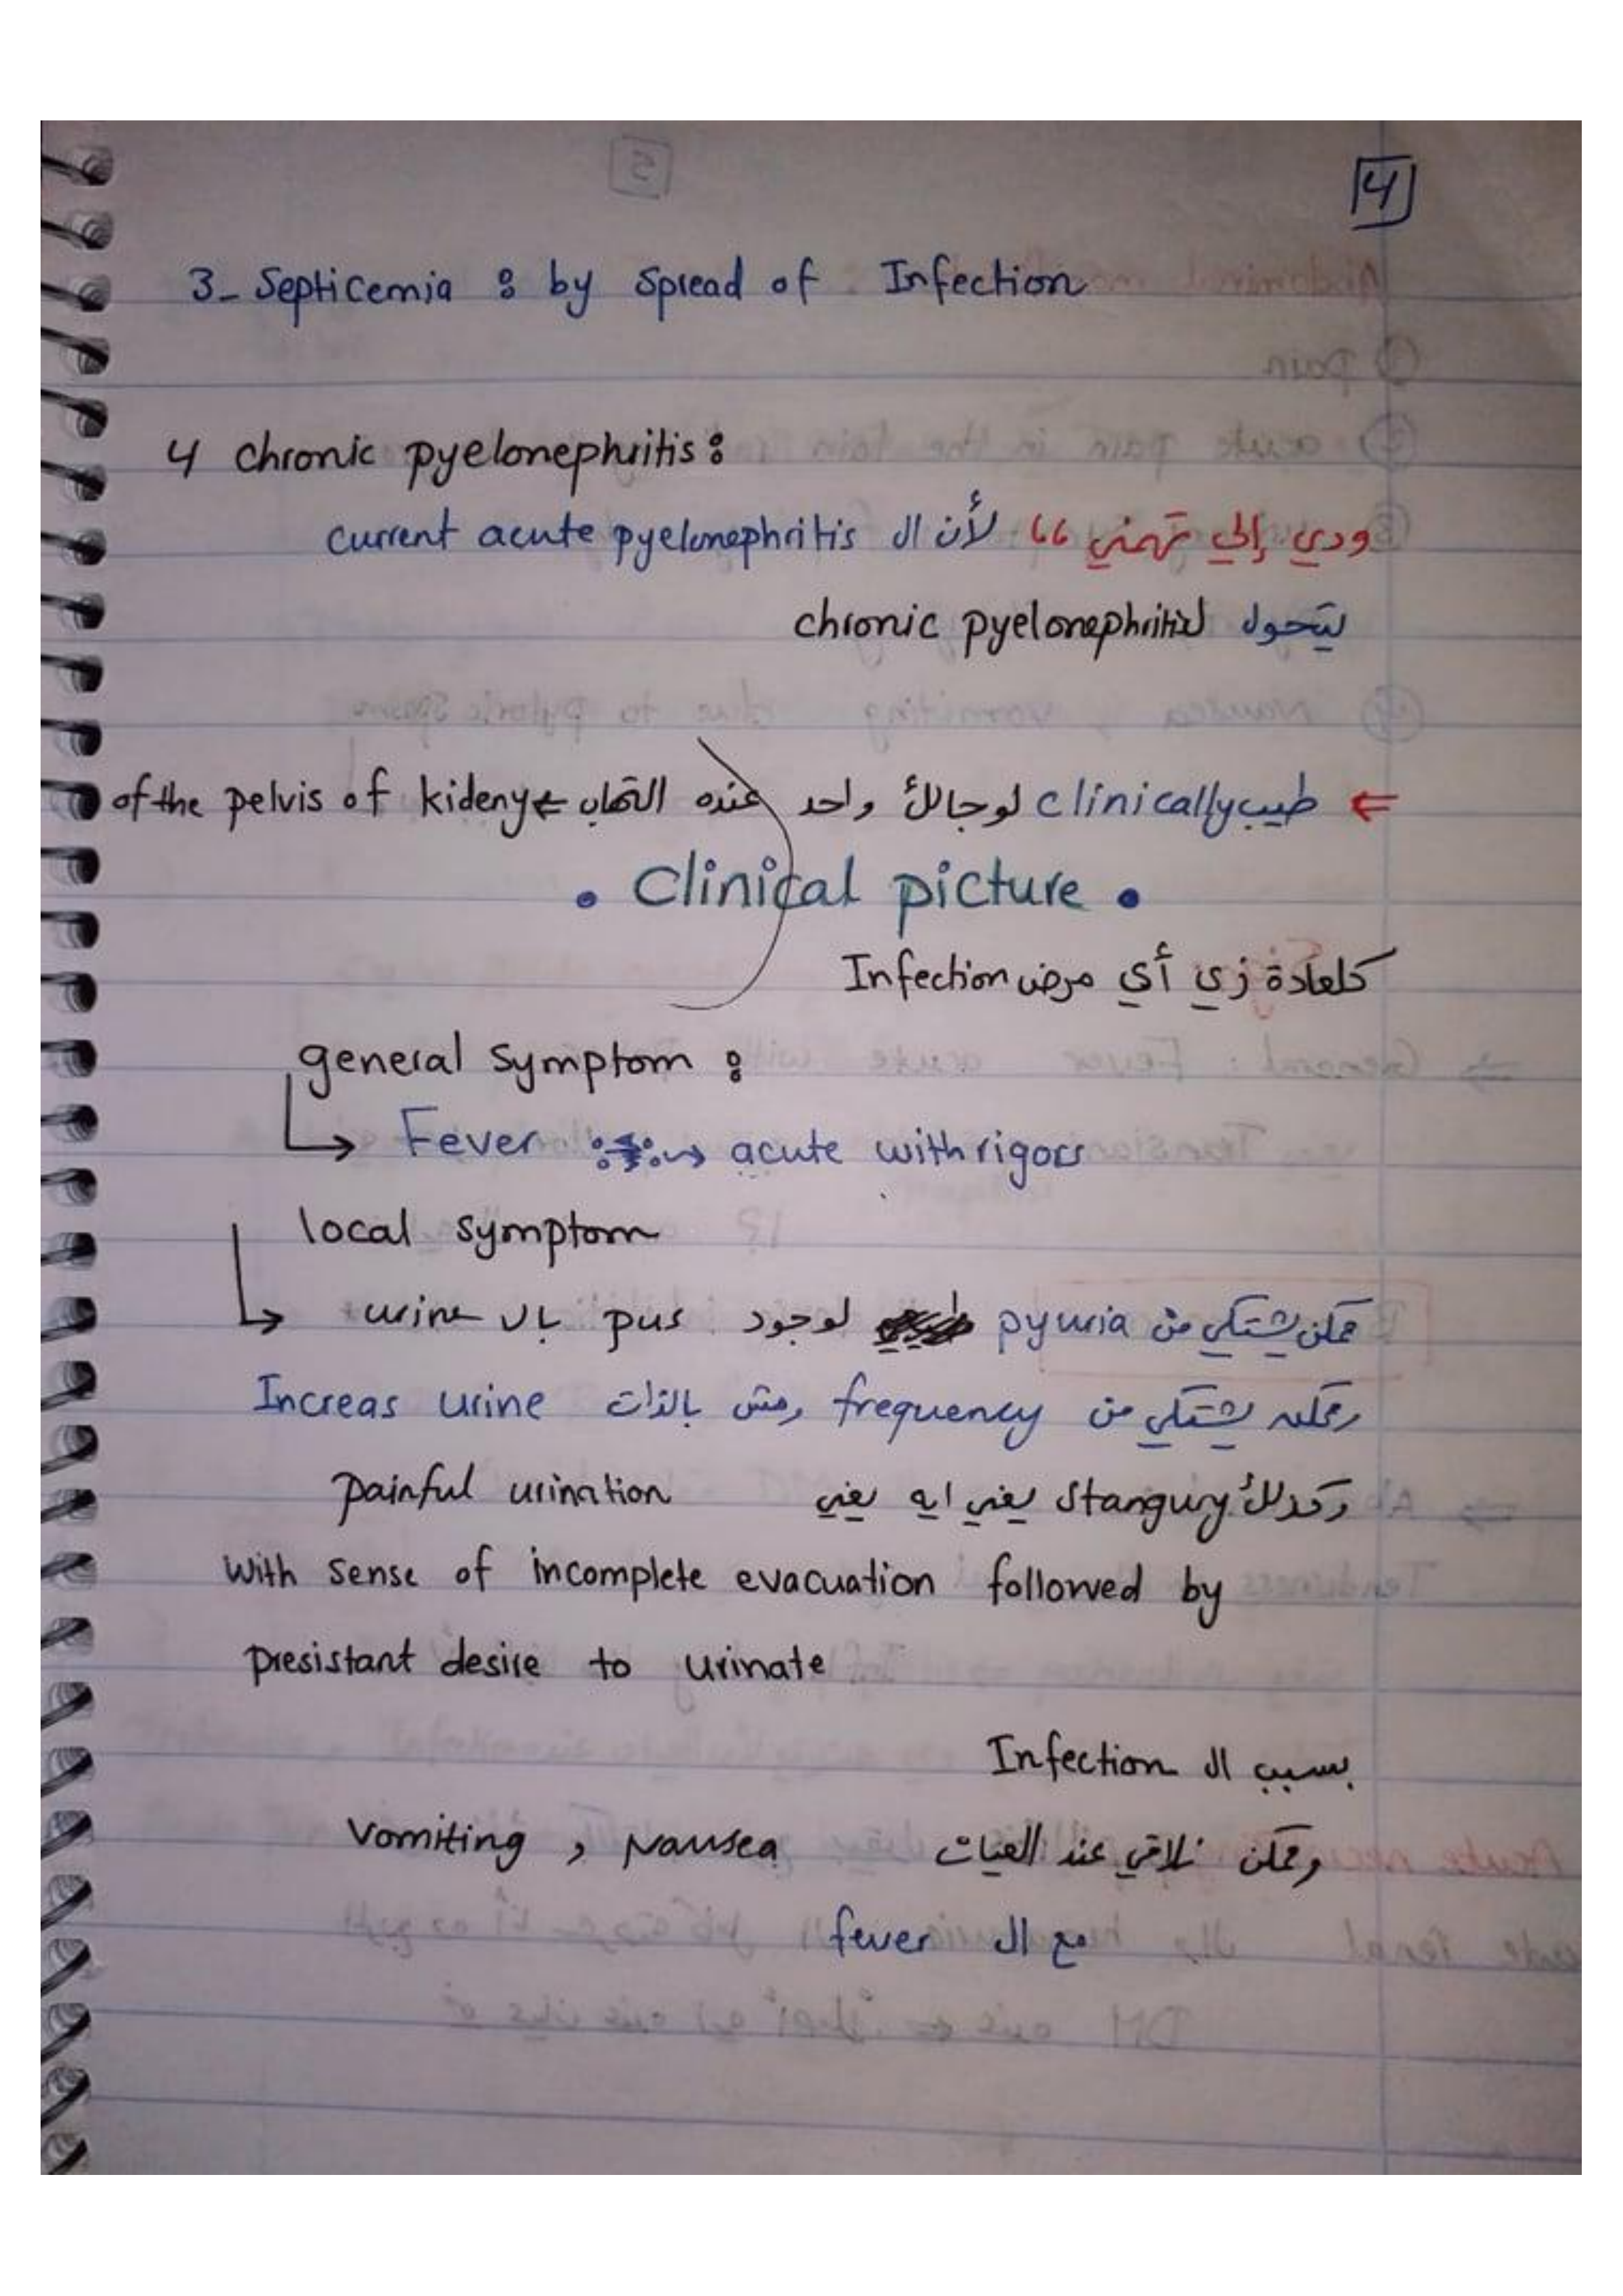 4
3- Septicemia : by spread of Infection
4 chronic pyelonephritis :
ودي إلي تهمني " لأن ال current acute pyelonephritis
يتحول ل chronic pyelonephritis
⇐ طيب clinically لو جالك واحد عنده التهاب ⇐ of the pelvis of kideny
• Clinical picture •
كلعادة زي أي مرض Infection
general symptom :
Fever → acute with rigors
local symptom
ممكن يشتكي من pyuria لوجود pus بال urine
وممكن يشتكي من frequency ومش بالذات Increas urine
وكذلك stangury يعني ايه يعني painful urination
with sense of incomplete evacuation followed by
presistant desire to urinate
بسبب ال Infection
وممكن نلاقي عند العيان Nausea , vomiting
مع ال fever